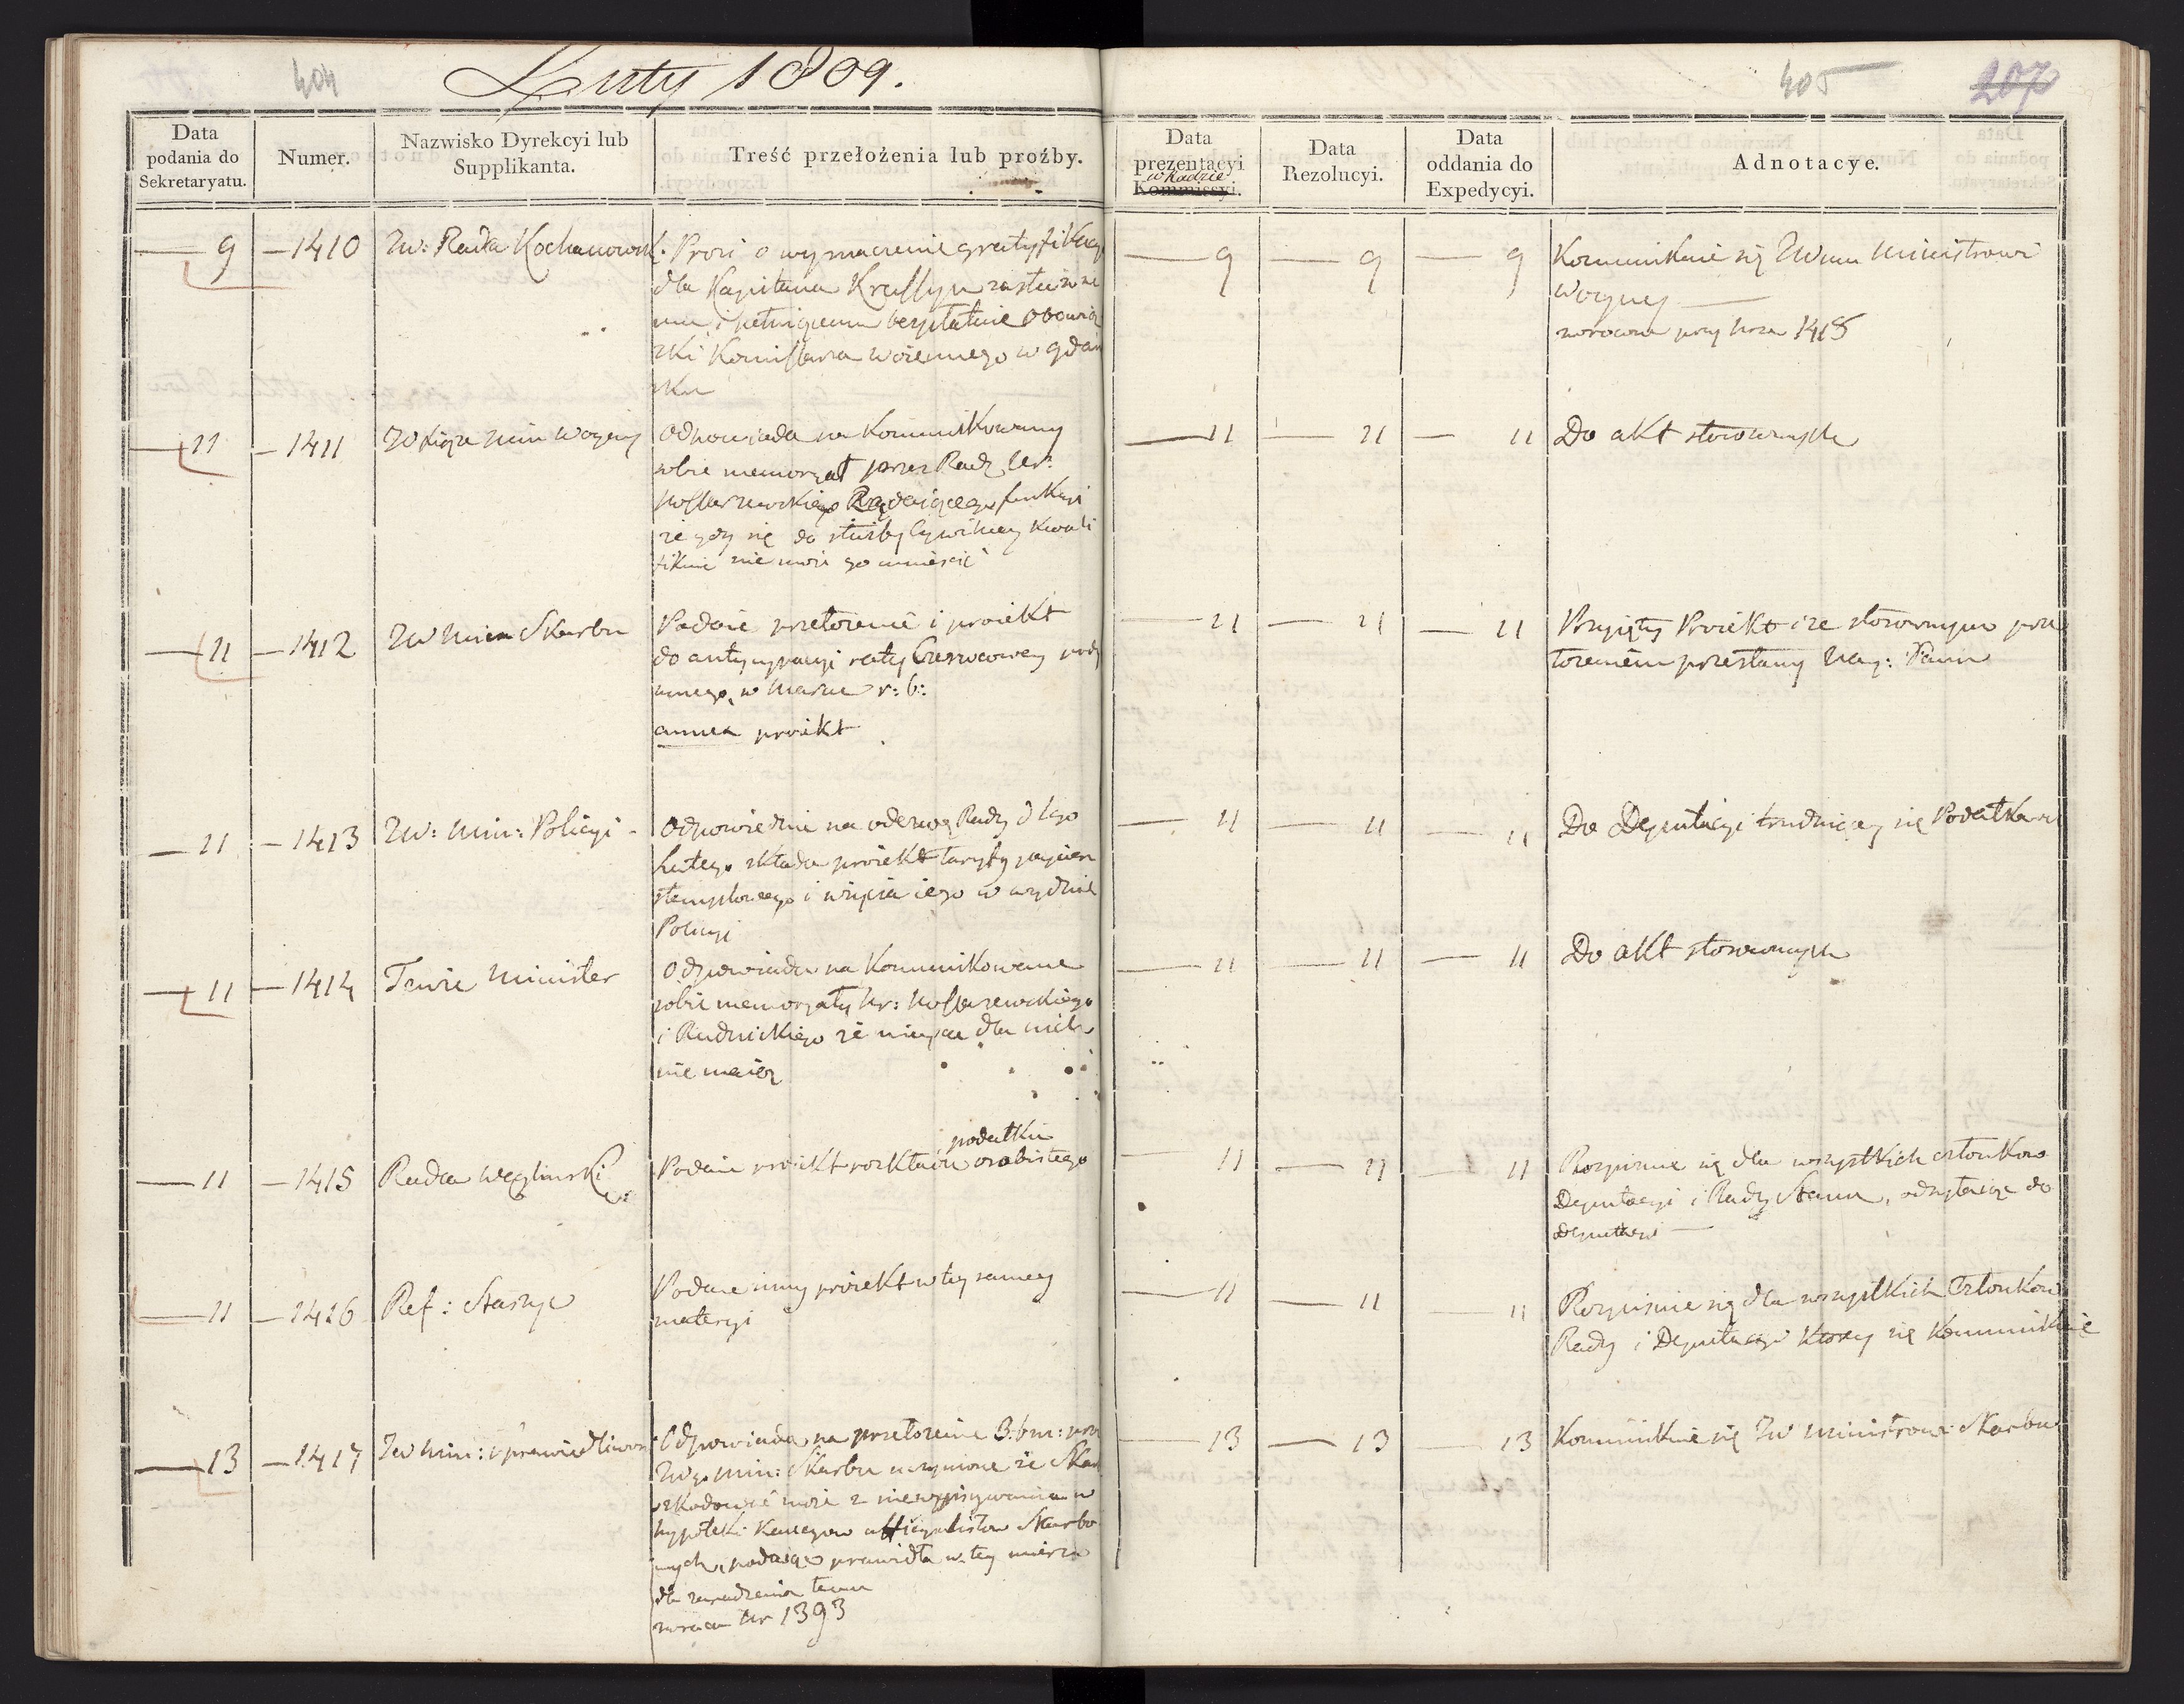 404
Luty 1809.
405
207
Data podania do Sekretaryatu.
Numer.
Nazwisko Dyrekcyi lub Supplikanta.
Treść przełożenia lub proźby.
Data prezentacyi w Radzie Kommissyi.
Data Rezolucyi.
Data oddania do Expedycyi.
Adnotacye.
9 — 1410 JW: Radca Kochanowsk.
Prosi o wyznaczenie gratyfikacyi
dla Kapitana zasłużone
mu i pełniącemu bezpłatnie obowią
zki Komissarza woiennego w Gdań
sku
— 9 — 9 — 9
Kommunikuie się JWmu Ministrowi
Woyny —
zwrócona przy Nrze 1418
11 — 1411 JO Xiąże Min Woyny
Odpowiada na kommunikowany
sobie memoryał przez Radę Ur:
funkcyi
że gdy się do służby Cywilney kwali
fikuie nie może go umieścić
— 11 — 11 — 11
Do akt stosownych
11 — 1412 JW Minister Skarbu
Podaie przełożenie i proiekt
do antycypacyi raty Czerwcowey
w Marcu r: b:
annex proiekt
— 11 — 11 — 11
Przyięty Proiekt i ze stosownym prze
łożeniem przesłany Nay: Panu
— 11 — 1413 JW: Min: Policyi —
Odpowiednie na odezwę Rady d 1go
Lutego składa proiekt taryfy papieru
stemplowego i użycia iego w wydziale
Policyi
— 11 — 11 — 11
Do Deputacyi trudniącey się Podatkami
11 — 1414 Tenże Minister
Odpowiada na kommunikowane
sobie memoryały Ur:
i Rudnickiego że mieysca dla nich
nie maią
— 11 — 11 — 11
Do akt stosownych
— 11 — 1415 Radca Węgliński
podatku
Podaie proiekt rozkładu osobistego
— 11 — 11 — 11
Rozpisuie się dla wszystkich członków
Deputacyi i Rady Stanu, odsyłaiąc do
Deputacyi —
— 11 — 1416 Ref: Staszyc
Podaie inny proiekt w tey samey
materyi
— 11 — 11 — 11
Rozpisuie się dla wszystkich Członków
Rady i Deputacyi którey się kommunikuie
— 13 — 1417 JW Min: sprawiedliwos:
Odpowiada na przełożenie 3. b m: prze
JWgo Min: Skarbu uczynione że Skar
szkodować może z niewypisywania w
hypoteki kaucyow officyalistow Skarbo
wych, podaiąc prawidła w tey mierze
dla zaradzenia temu
zwraca Nr 1393
— 13 — 13 — 13
Kommunikuie się JW Ministrowi Skarbu